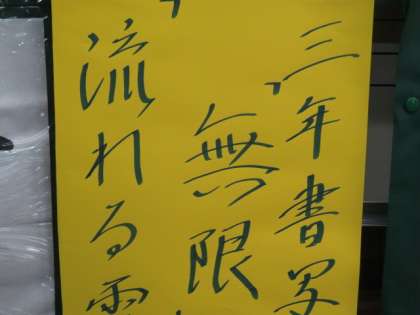 三年書
無限
流れる